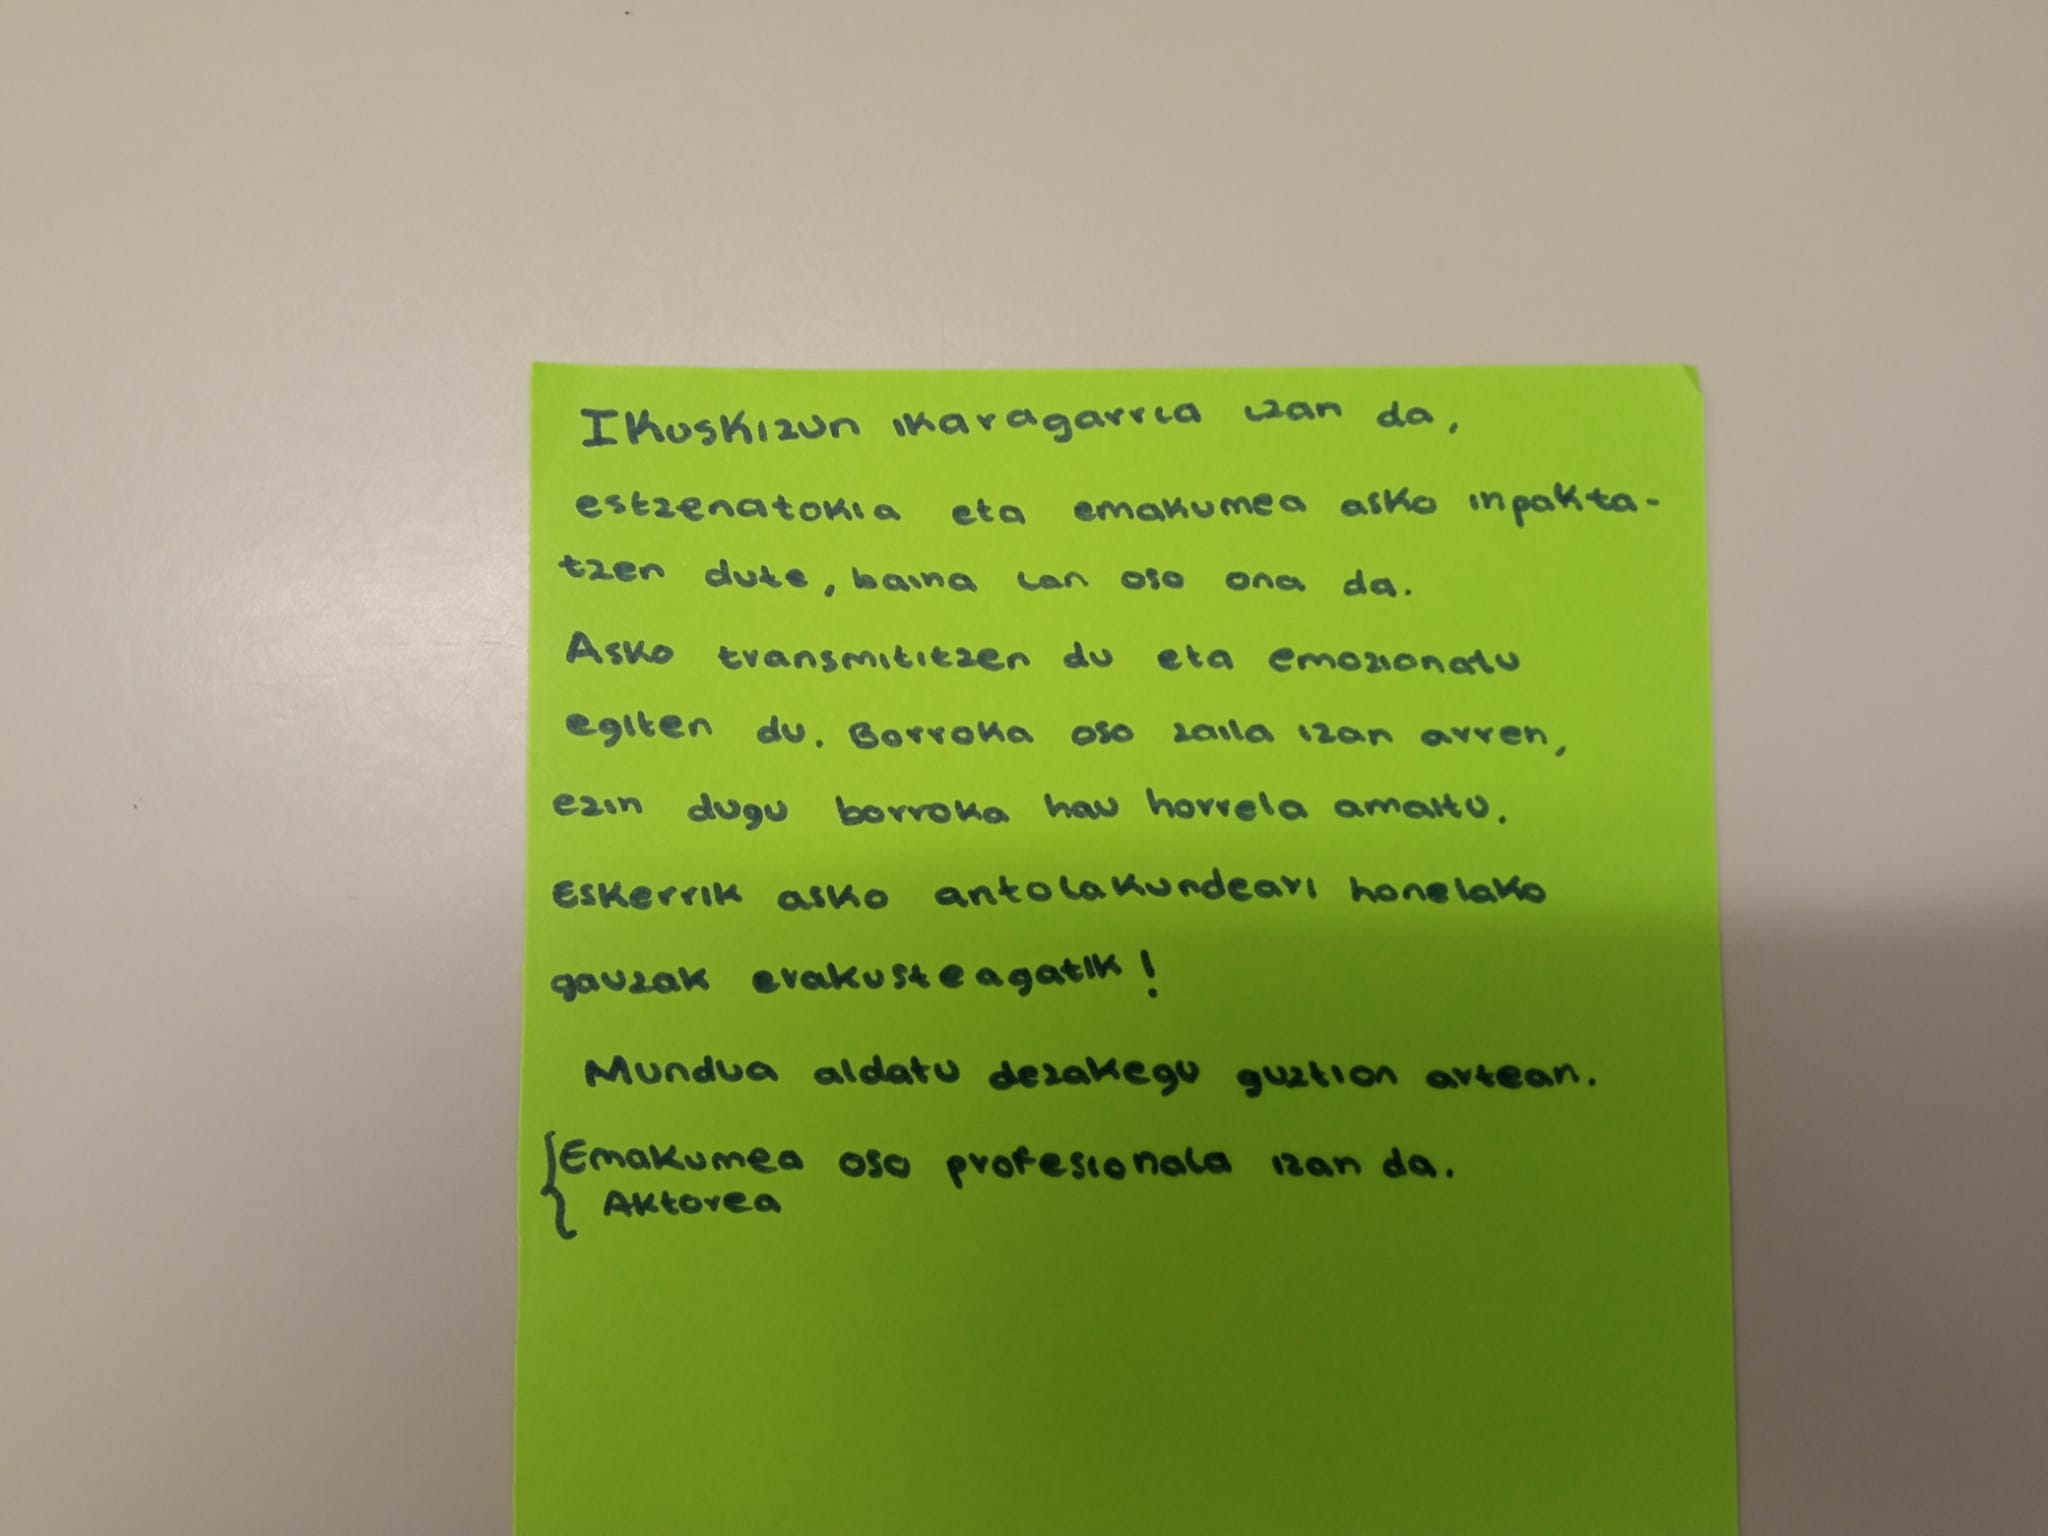 Ikuskizun ikaragarria izan da,
estzenatokia eta emakumea asko inpakta-
tzen dute, baina lan oso ona da.
Asko transmititzen du eta emozionatu
egiten du. Borroka oso zaila izan arren,
ezin dugu borroka hau horrela amaitu.
Eskerrik asko antolakundeari honelako
gauzak erakusteagatik!
Mundua aldatu dezakegu guztion artean.
{Emakumea oso profesionala izan da.
Aktorea